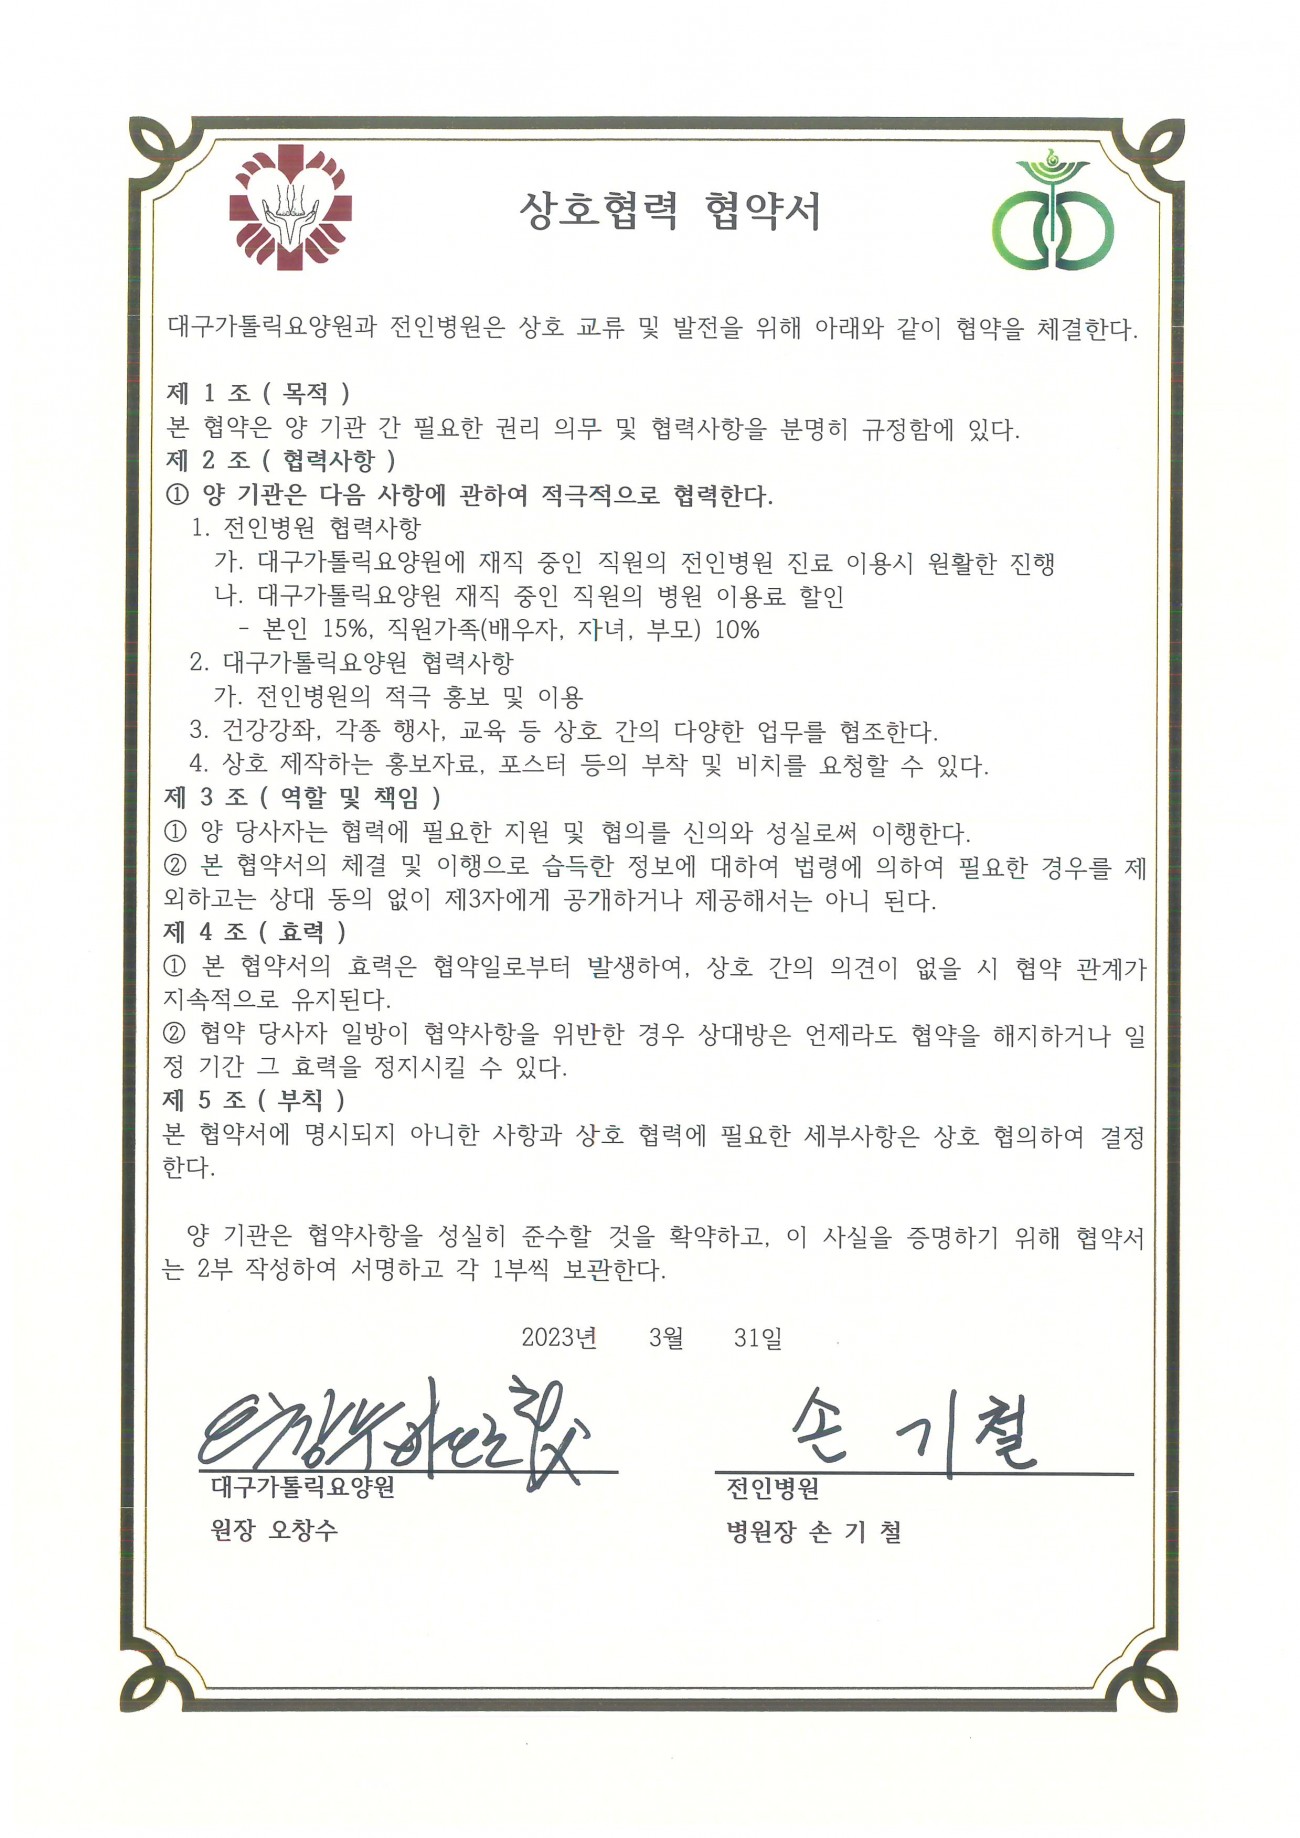 상호협력 협약서
대구가톨릭요양원과 전인병원은 상호 교류 및 발전을 위해 아래와 같이 협약을 체결한다.
제 1 조 ( 목적 )
본 협약은 양 기관 간 필요한 권리 의무 및 협력사항을 분명히 규정함에 있다.
제 2 조 ( 협력사항 )
① 양 기관은 다음 사항에 관하여 적극적으로 협력한다.
1. 전인병원 협력사항
가. 대구가톨릭요양원에 재직 중인 직원의 전인병원 진료 이용시 원활한 진행
나. 대구가톨릭요양원 재직 중인 직원의 병원 이용료 할인
- 본인 15%, 직원가족(배우자, 자녀, 부모) 10%
2. 대구가톨릭요양원 협력사항
가. 전인병원의 적극 홍보 및 이용
3. 건강강좌, 각종 행사, 교육 등 상호 간의 다양한 업무를 협조한다.
4. 상호 제작하는 홍보자료, 포스터 등의 부착 및 비치를 요청할 수 있다.
제 3 조 ( 역할 및 책임 )
① 양 당사자는 협력에 필요한 지원 및 협의를 신의와 성실로써 이행한다.
② 본 협약서의 체결 및 이행으로 습득한 정보에 대하여 법령에 의하여 필요한 경우를 제
외하고는 상대 동의 없이 제3자에게 공개하거나 제공해서는 아니 된다.
제 4 조 ( 효력 )
① 본 협약서의 효력은 협약일로부터 발생하여, 상호 간의 의견이 없을 시 협약 관계가
지속적으로 유지된다.
② 협약 당사자 일방이 협약사항을 위반한 경우 상대방은 언제라도 협약을 해지하거나 일
정 기간 그 효력을 정지시킬 수 있다.
제 5 조 ( 부칙 )
본 협약서에 명시되지 아니한 사항과 상호 협력에 필요한 세부사항은 상호 협의하여 결정
한다.
양 기관은 협약사항을 성실히 준수할 것을 확약하고, 이 사실을 증명하기 위해 협약서
는 2부 작성하여 서명하고 각 1부씩 보관한다.
2023년 3월 31일
손 기 철
대구가톨릭요양원
전인병원
원장 오창수
병원장 손 기 철